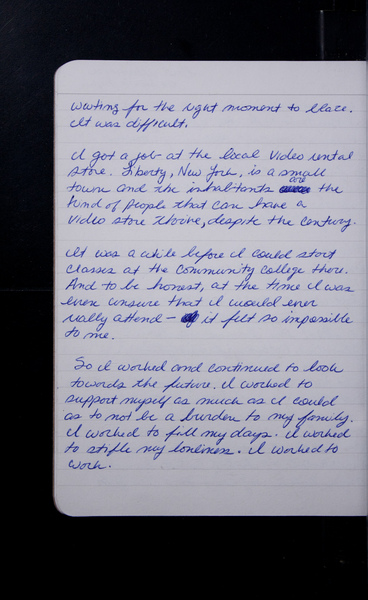 waiting for the right moment to leave.
It was difficult.
I got a job at the local video rental
store. Liberty, New York, is a small
town and the inhabitants are the
kind of people that can have a
video store thrive, despite the century.
It was a while before I could start
classes at the community college there.
And to be honest, at the time I was
even unsure that I would ever
really attend – it felt so impossible
to me.
So I worked and continued to look
towards the future. I worked to
support myself as much as I could
as to not be a burden to my family.
I worked to fill my days. I worked
to stifle my loneliness. I worked to
work.